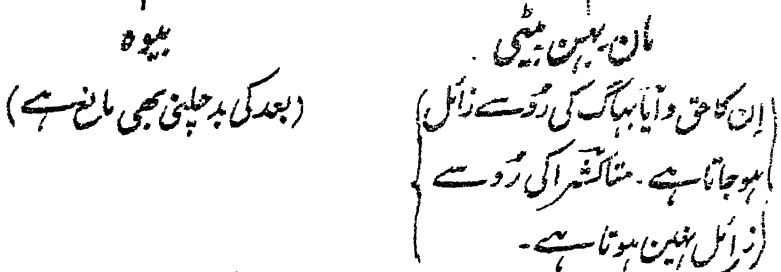 مان بہن بیٹی
(ان کا حق دایا بہاگ کی رُو سے زائل
ہو جاتا ہے ۔ متاکشرا کی رُو سے
زائل نہین ہوتا ہے ۔)
بیوہ
(بعد کی بد چلنی بھی مانع ہے)